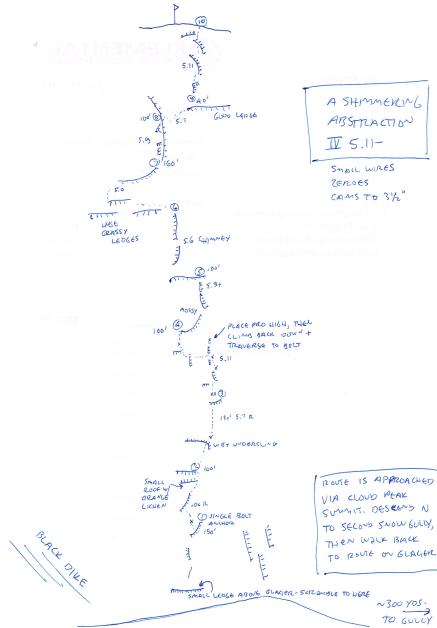 ELEMENTAL
10
5.11
9
40'
GOOD LEDGE
5.7
100'
8
5.9
7
160'
5.0
WIDE
GRASSY
LEDGES
6
5.6 CHIMNEY
5
100'
5.9+
MOSSY
100'
4
PLACE PRO HIGH, THEN
CLIMB BACK DOWN +
TRAVERSE TO BOLT
5.11
3
5.7 R
WET UNDERCLING
2
100'
SMALL
ROOF W/
ORANGE
LICHEN
1
SINGLE BOLT
ANCHOR
150'
SMALL LEDGE ABOVE GLACIER - SCRAMBLE TO HERE
BLACK DIKE
A SHIMMERING
ABSTRACTION
IV 5.11-
SMALL WIRES
ZEROES
CAMS TO 3½"
ROUTE IS APPROACHED
VIA CLOUD PEAK
SUMMIT. DESCEND N
TO SECOND SNOW GULLY,
THEN WALK BACK
TO ROUTE ON GLACIER
~300 YDS.
TO GULLY